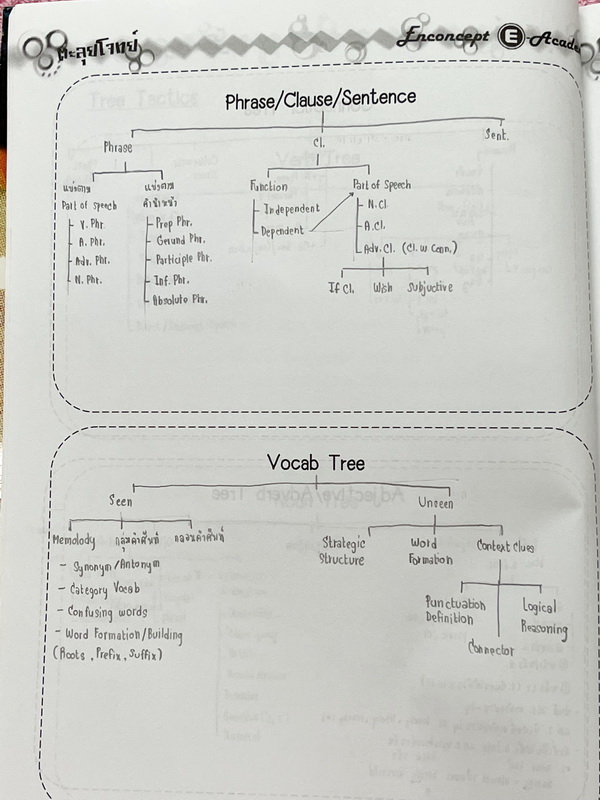 ตะลุยโจทย์
Enconcept E-Acade
Phrase/Clause/Sentence
Phrase
Cl.
Sent.
แบ่งตาม
Part of speech
V. Phr.
A. Phr.
Adv. Phr.
N. Phr.
แบ่งตาม
คำนำหน้า
Prep Phr.
Gerund Phr.
Participle Phr.
Inf. Phr.
Absolute Phr.
Function
Independent
Dependent
Part of Speech
N. Cl
A. Cl.
Adv. Cl. (Cl. w Conn.)
If Cl. Wish Subjuctive
Vocab Tree
Seen
Unseen
Memolody กลุ่มคำศัพท์ กลอนคำศัพท์
- Synonym/Antonym
- Category Vocab
- Confusing words
- Word Formation/Building
(Roots, Prefix, Suffix)
Strategic
Structure
Word
Formation
Context Clues
Punctuation
Definition
Connector
Logical
Reasoning